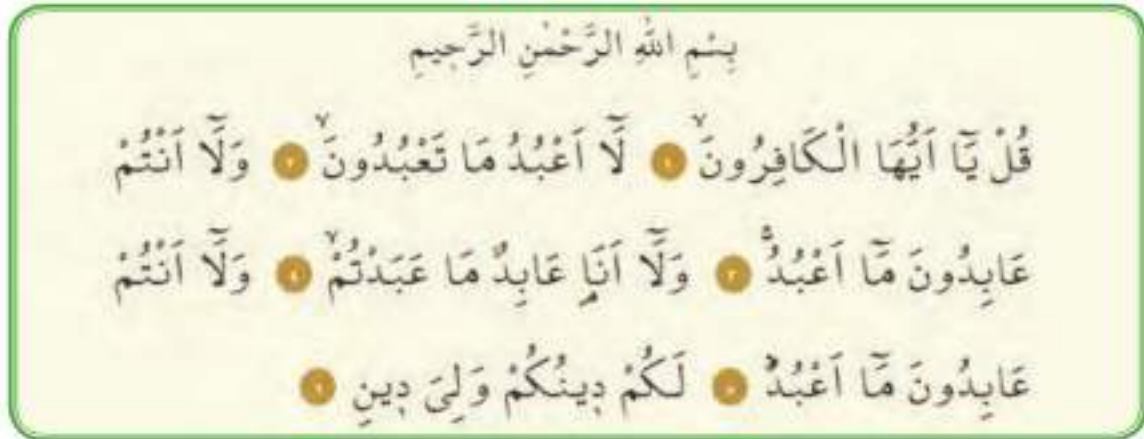 بِسْمِ اللّٰهِ الرَّحْمٰنِ الرَّحٖيمِ
قُلْ يَٓا اَيُّهَا الْكَافِرُونَۙ ١ لَٓا اَعْبُدُ مَا تَعْبُدُونَۙ ٢ وَلَٓا اَنْتُمْ
عَابِدُونَ مَٓا اَعْبُدُۚ ٣ وَلَٓا اَنَا۬ عَابِدٌ مَا عَبَدْتُمْۙ ٤ وَلَٓا اَنْتُمْ
عَابِدُونَ مَٓا اَعْبُدُۜ ٥ لَكُمْ دٖينُكُمْ وَلِيَ دٖينِ ٦